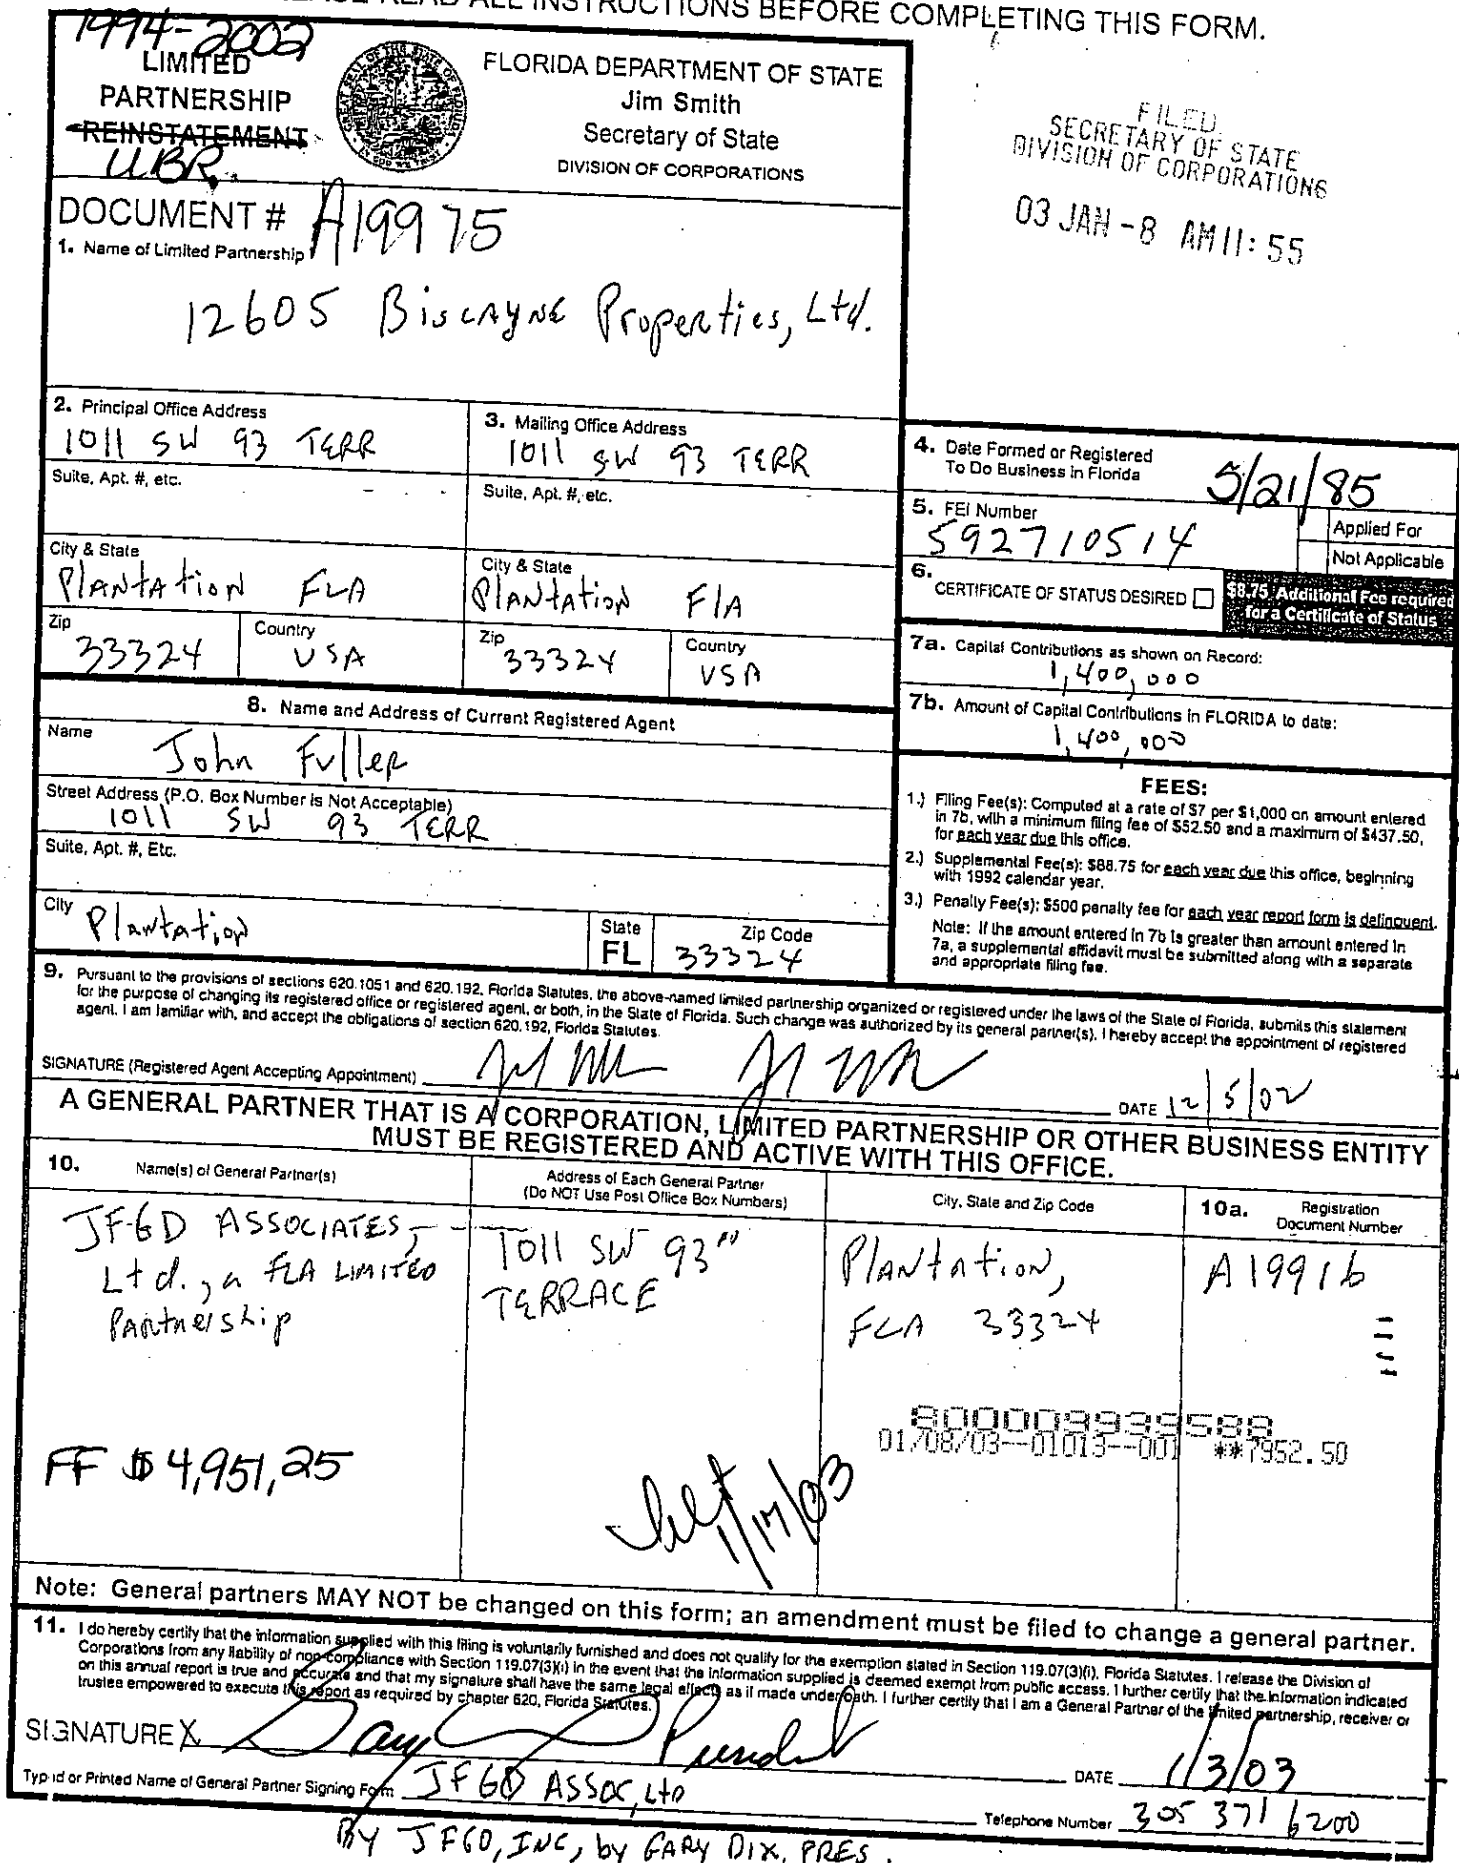 PLEASE READ ALL INSTRUCTIONS BEFORE COMPLETING THIS FORM.
1994-2002
LIMITED
PARTNERSHIP
REINSTATEMENT
UBR.
FLORIDA DEPARTMENT OF STATE
Jim Smith
Secretary of State
DIVISION OF CORPORATIONS
FILED
SECRETARY OF STATE
DIVISION OF CORPORATIONS
03 JAN -8 AM 11:55
DOCUMENT # A19975
1. Name of Limited Partnership
12605 Biscayne Properties, Ltd.
2. Principal Office Address
1011 SW 93 TERR
Suite, Apt. #, etc.
City & State
Plantation FLA
Zip
33324
Country
USA
3. Mailing Office Address
1011 SW 93 TERR
Suite, Apt. #, etc.
City & State
Plantation FlA
Zip
33324
Country
USA
4. Date Formed or Registered
To Do Business in Florida
5/21/85
5. FEI Number
592710514
Applied For
Not Applicable
6. CERTIFICATE OF STATUS DESIRED
$8.75 Additional Fee required
for a Certificate of Status
7a. Capital Contributions as shown on Record:
1,400,000
7b. Amount of Capital Contributions in FLORIDA to date:
1,400,000
8. Name and Address of Current Registered Agent
Name
John Fuller
Street Address (P.O. Box Number is Not Acceptable)
1011 SW 93 TERR
Suite, Apt. #, Etc.
City
Plantation
State
FL
Zip Code
33324
FEES:
1.) Filing Fee(s): Computed at a rate of $7 per $1,000 on amount entered
in 7b, with a minimum filing fee of $52.50 and a maximum of $437.50,
for each year due this office.
2.) Supplemental Fee(s): $88.75 for each year due this office, beginning
with 1992 calendar year.
3.) Penalty Fee(s): $500 penalty fee for each year report form is delinquent.
Note: If the amount entered in 7b is greater than amount entered in
7a, a supplemental affidavit must be submitted along with a separate
and appropriate filing fee.
9. Pursuant to the provisions of sections 620.1051 and 620.192, Florida Statutes, the above-named limited partnership organized or registered under the laws of the State of Florida, submits this statement
for the purpose of changing its registered office or registered agent, or both, in the State of Florida. Such change was authorized by its general partner(s). I hereby accept the appointment of registered
agent. I am familiar with, and accept the obligations of section 620.192, Florida Statutes.
SIGNATURE (Registered Agent Accepting Appointment)
DATE 12/5/02
A GENERAL PARTNER THAT IS A CORPORATION, LIMITED PARTNERSHIP OR OTHER BUSINESS ENTITY
MUST BE REGISTERED AND ACTIVE WITH THIS OFFICE.
10. Name(s) of General Partner(s)
Address of Each General Partner
(Do NOT Use Post Office Box Numbers)
City, State and Zip Code
10a. Registration
Document Number
JFGD ASSOCIATES,
Ltd., a FLA LIMITED
Partnership
1011 SW 93"
TERRACE
Plantation,
FLA 33324
A19916
800009939588
01/08/03--01013--001 **7952.50
FF $4,951,25
1/17/03
Note: General partners MAY NOT be changed on this form; an amendment must be filed to change a general partner.
11. I do hereby certify that the information supplied with this filing is voluntarily furnished and does not qualify for the exemption stated in Section 119.07(3)(i), Florida Statutes. I release the Division of
Corporations from any liability of non-compliance with Section 119.07(3)(i) in the event that the information supplied is deemed exempt from public access. I further certify that the information indicated
on this annual report is true and accurate and that my signature shall have the same legal effects as if made under oath. I further certify that I am a General Partner of the limited partnership, receiver or
trustee empowered to execute this report as required by chapter 620, Florida Statutes.
SIGNATURE X Gary President
DATE 1/3/03
Typed or Printed Name of General Partner Signing Form JFGD ASSOC, Ltd
Telephone Number 305 371 6200
By JFGD, INC, by GARY DIX, PRES.